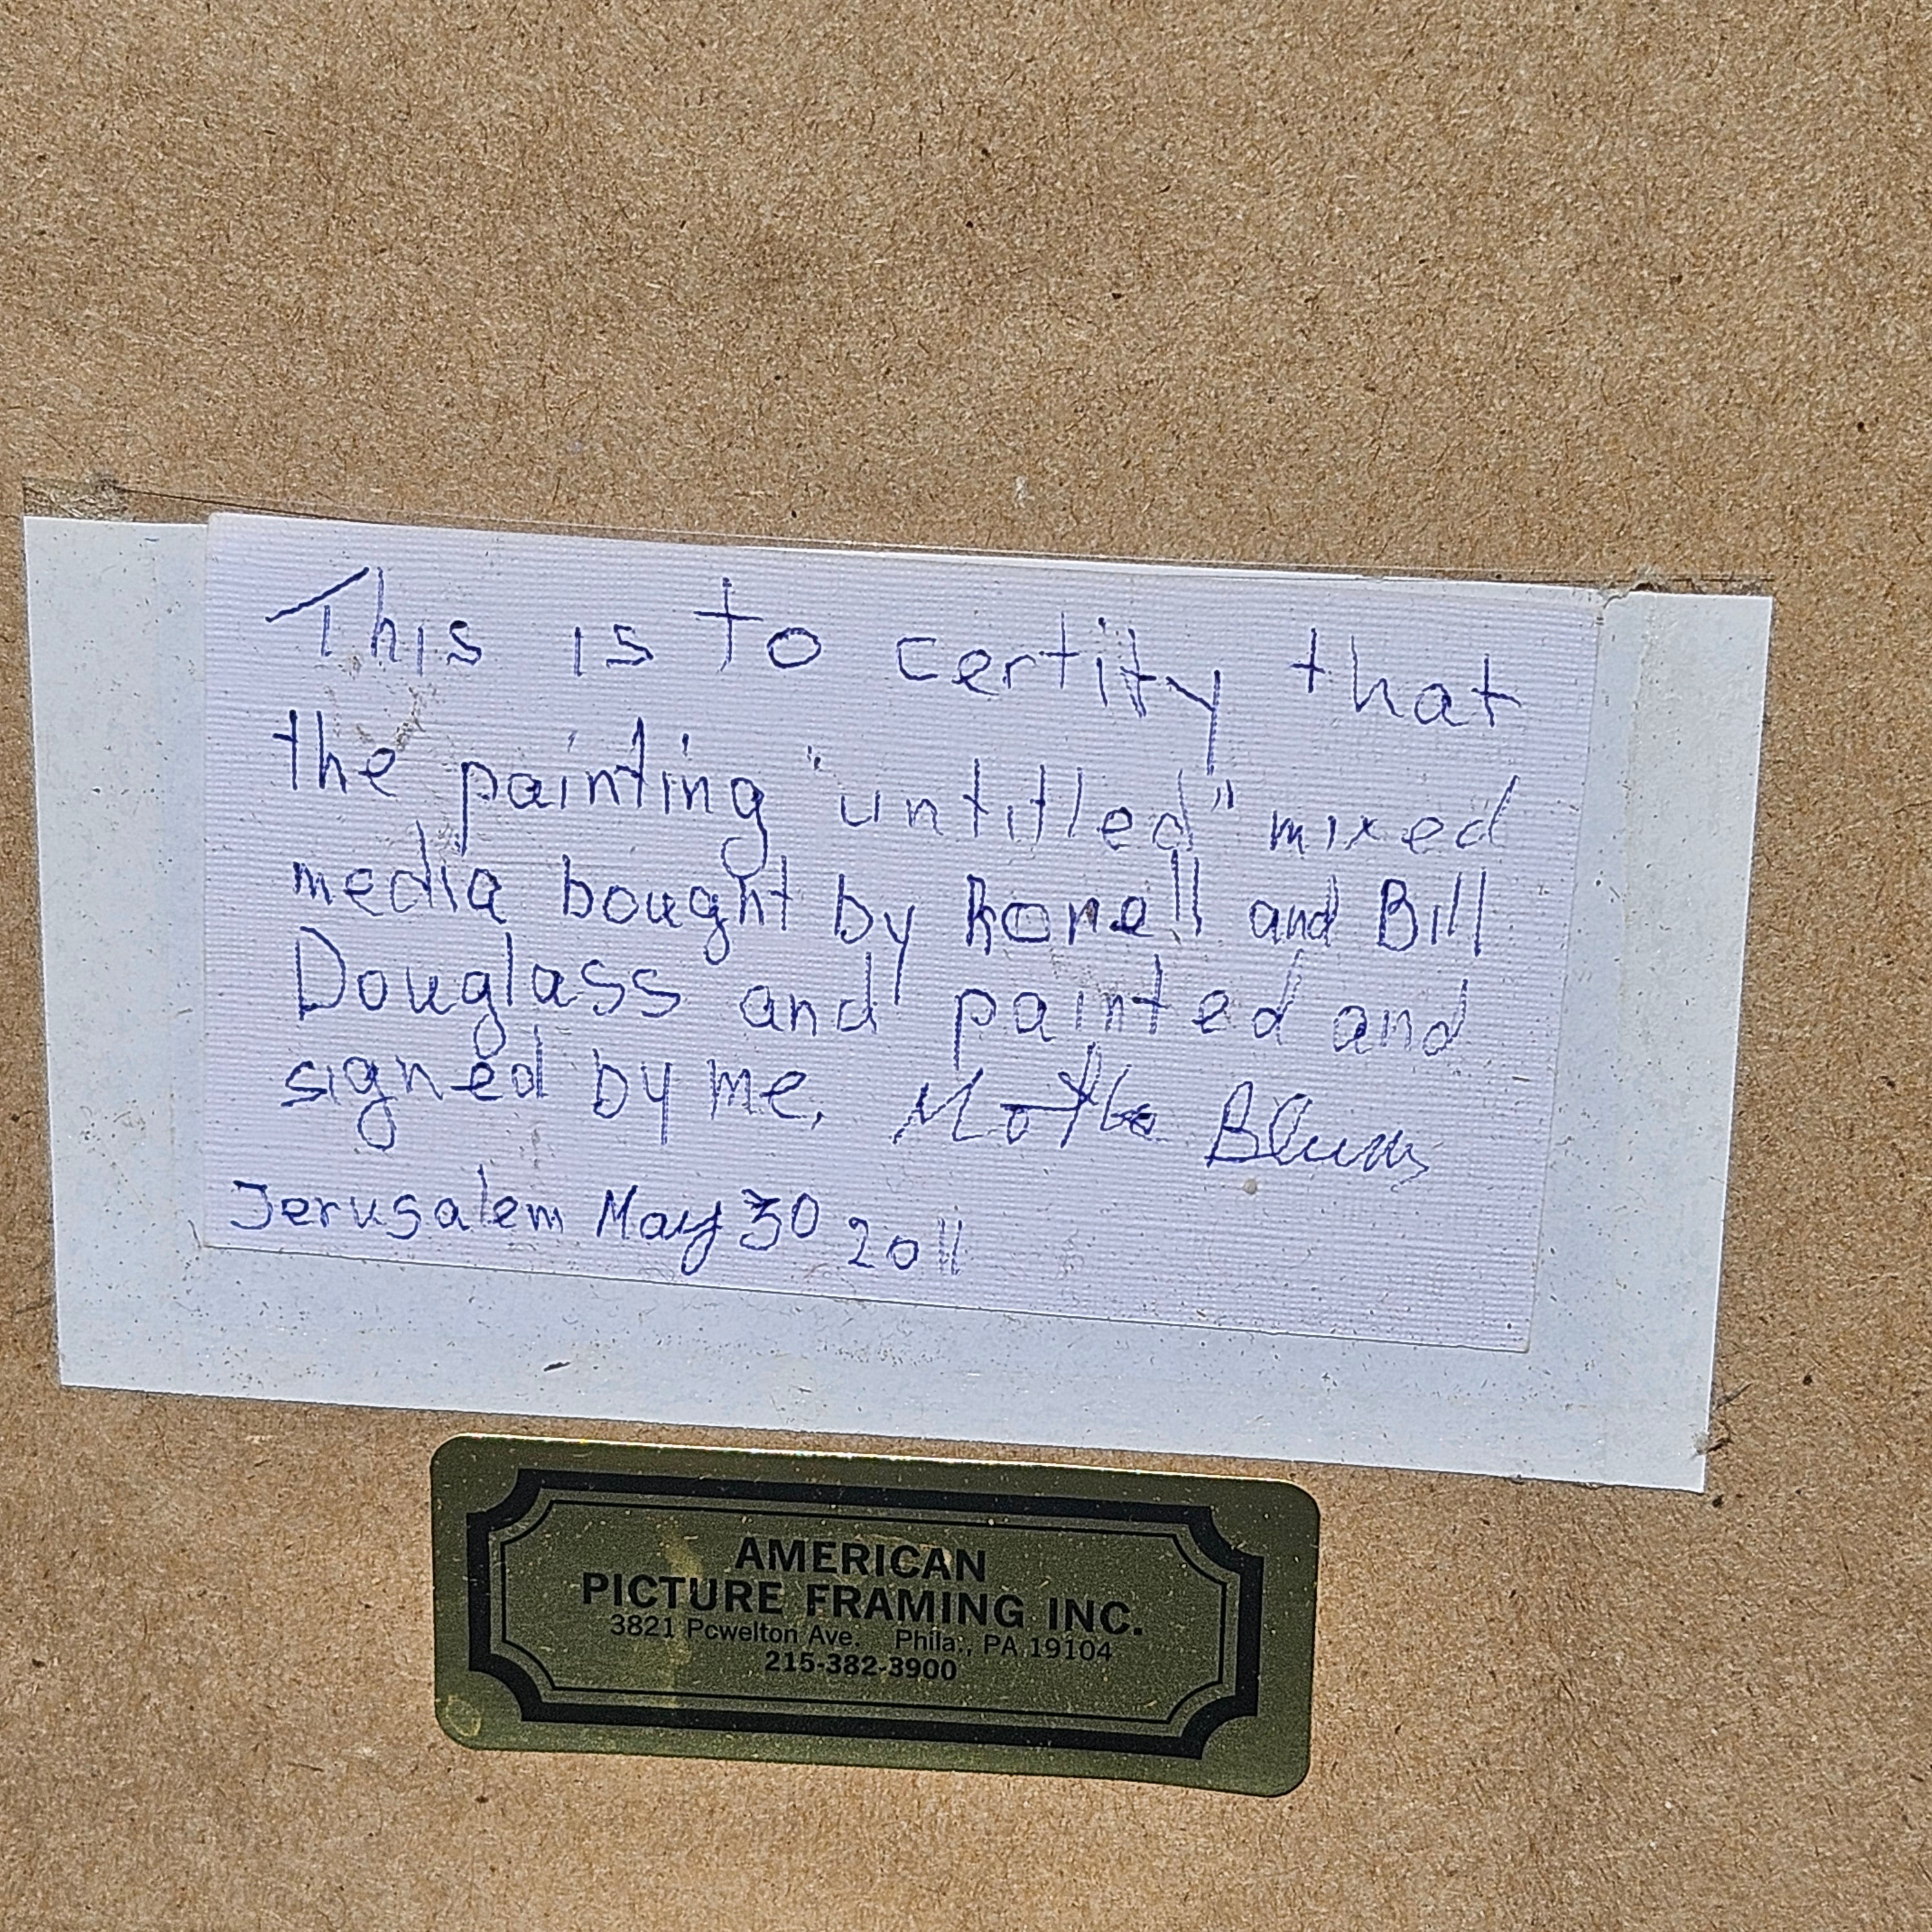 This is to certify that
the painting "untitled" mixed
media bought by Ronell and Bill
Douglass and painted and
signed by me, Motke Blum
Jerusalem May 30 2011
AMERICAN
PICTURE FRAMING INC.
3821 Powelton Ave. Phila., PA 19104
215-382-3900